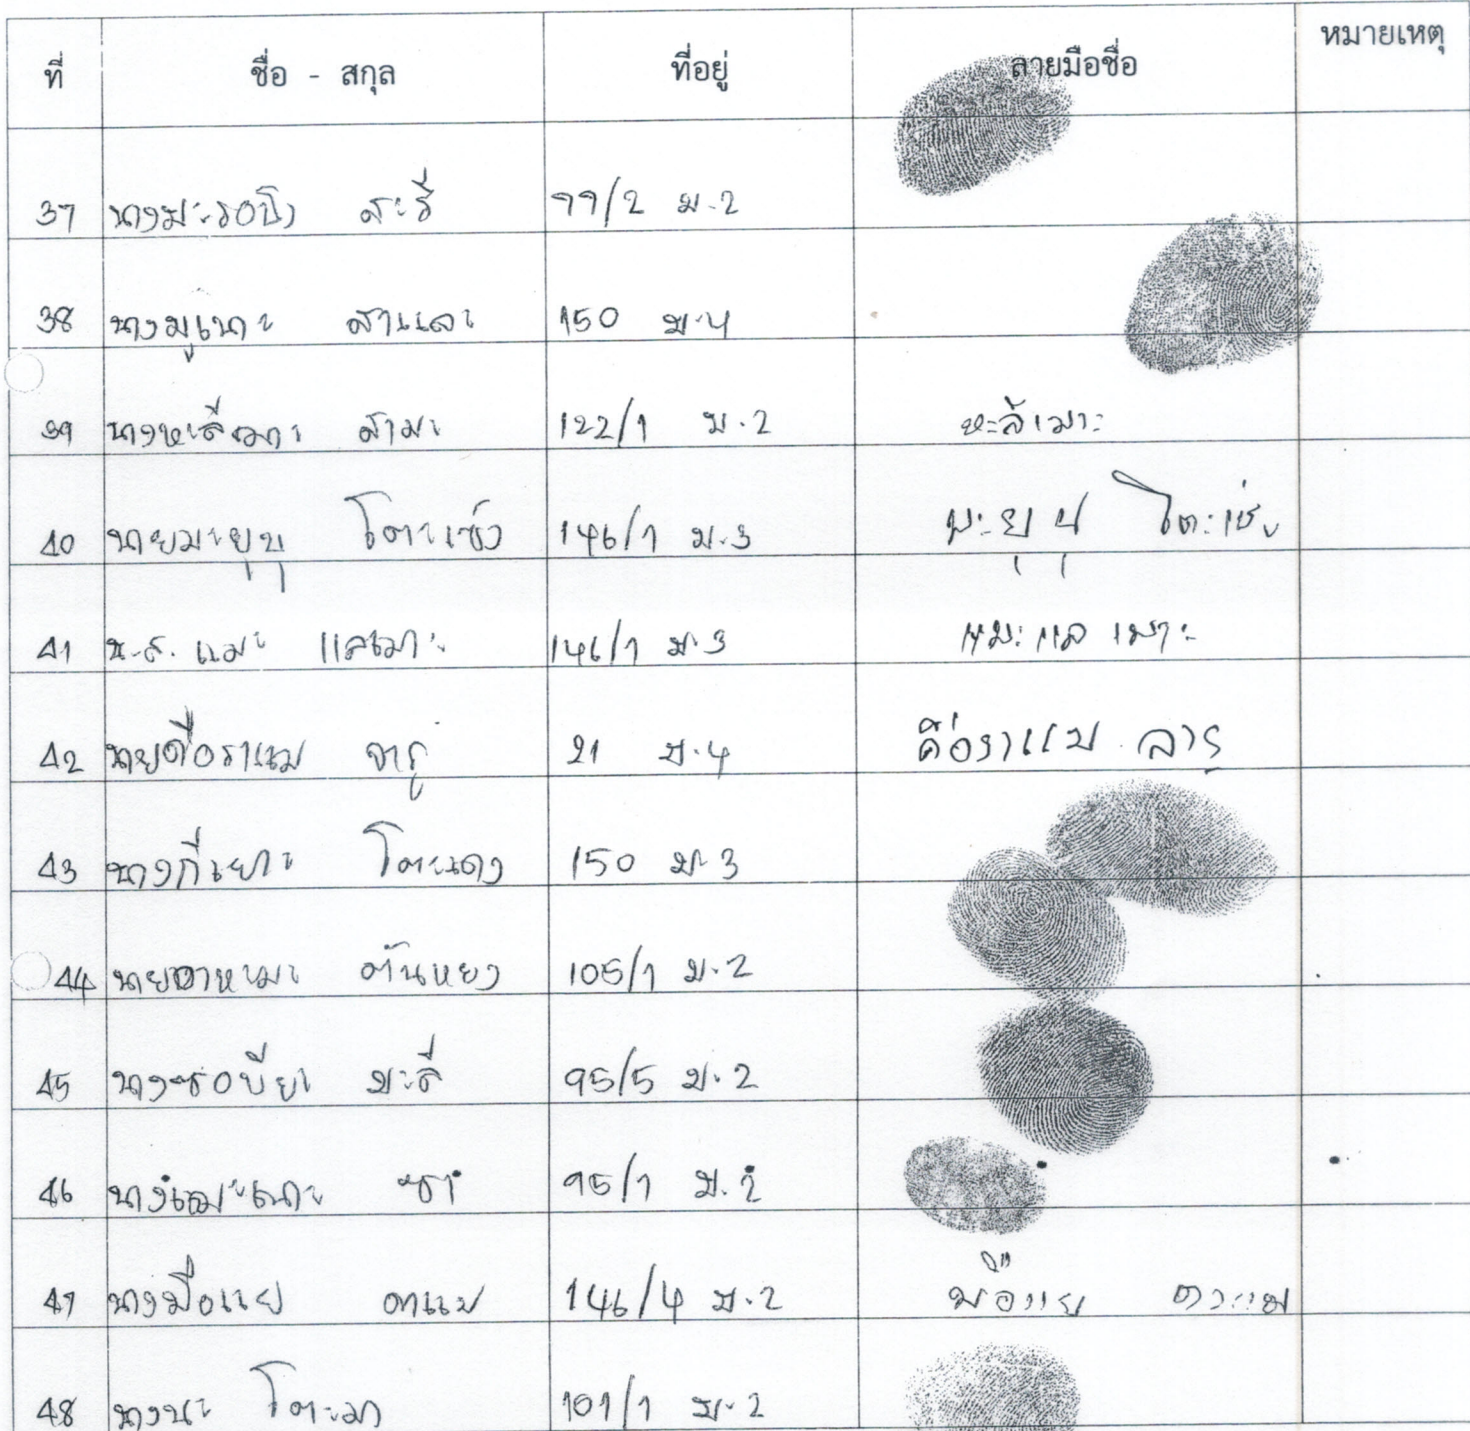 ที่ ชื่อ - สกุล ที่อยู่ ลายมือชื่อ หมายเหตุ
37 นางมะรอปิง สะรี 99/2 ม.2
38 นางมูเนาะ สาและ 150 ม.4
39 นางหะลีเมาะ สามะ 122/1 ม.2 หะลีเมาะ
40 นายมะยูนุ โตะเซ็ง 146/1 ม.3 มะยูนุ โตะเซ็ง
41 น.ส. แมะ แลเมาะ 146/1 ม.3 แมะ แลเมาะ
42 นายดือราแม 21 ม.4 ดือราแม
43 นางกีเยาะ โตะแดง 150 ม.3
44 ตันหยง 105/1 ม.2
45 นางรอบียะ มะลี 95/5 ม.2
46 95/1 ม.2
47 นางมือแย ตาแม 146/4 ม.2 มือแย
48 นางนะ โตะมา 101/1 ม.2